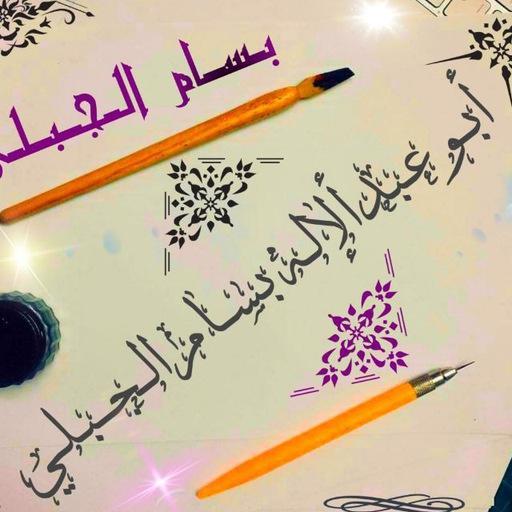 بسام الجبلي
أبو عبد ألإله بسام الجبلي